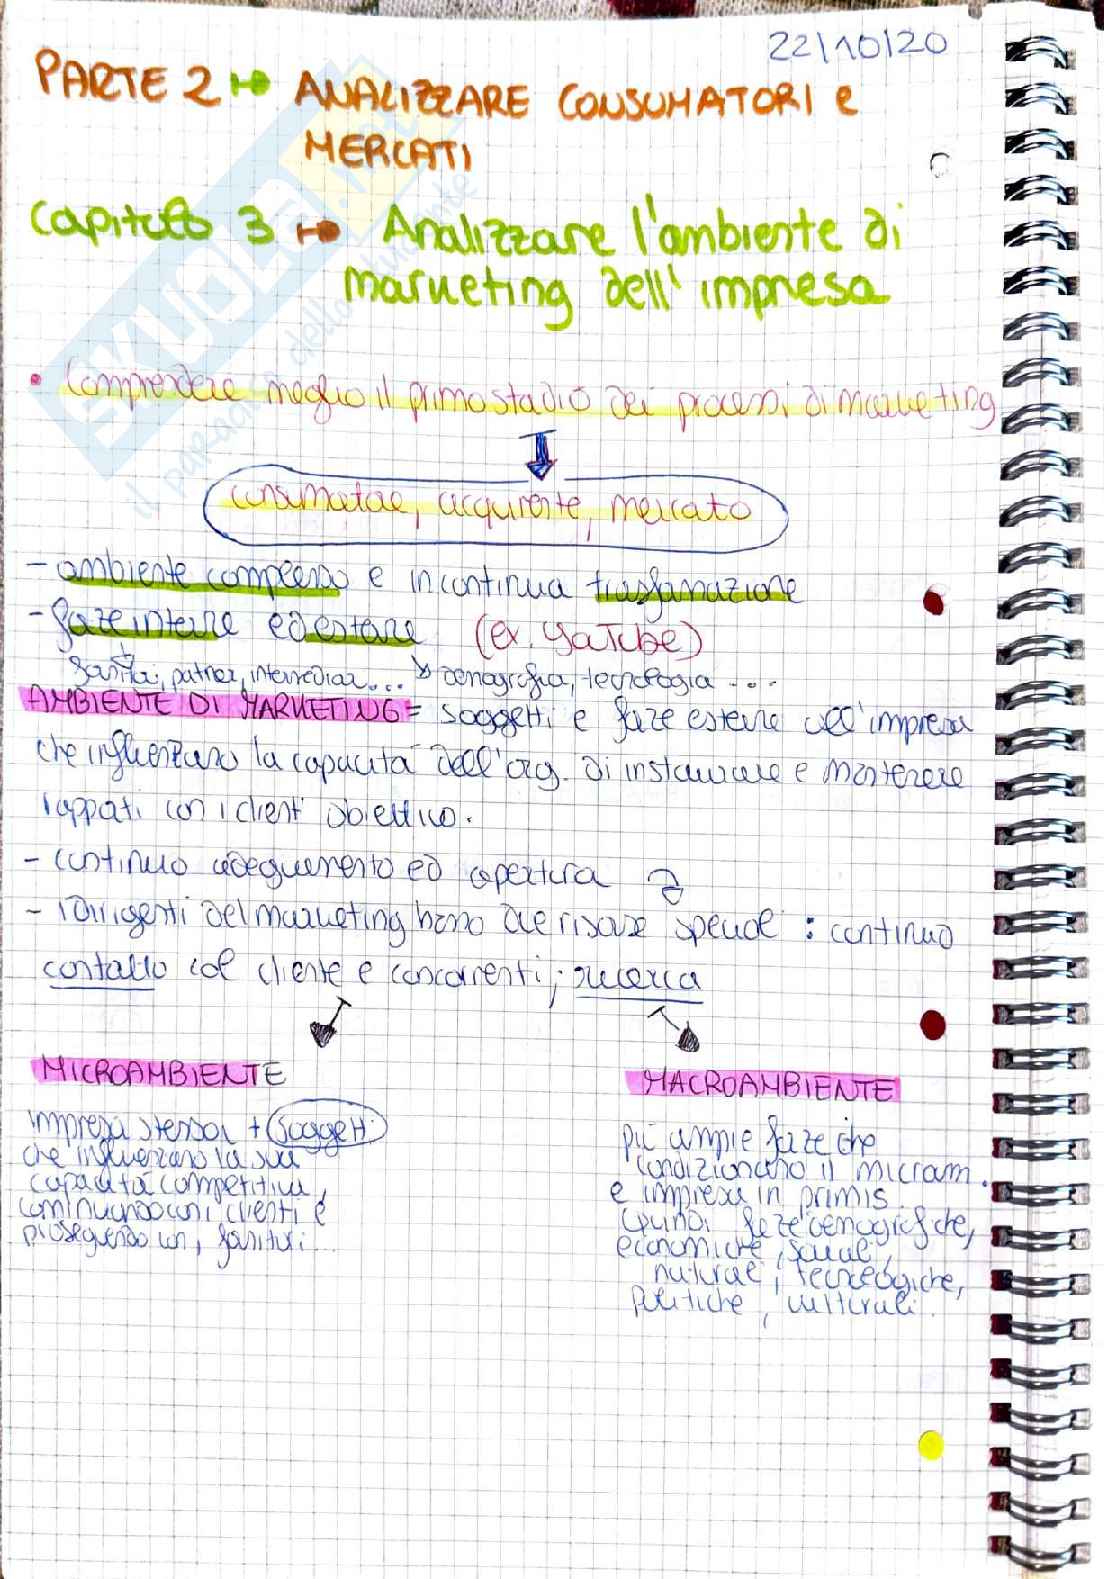 22/10/20
PARTE 2 ↦ ANALIZZARE CONSUMATORI e
MERCATI
Capitolo 3 ↦ Analizzare l'ambiente di
marketing dell'impresa
• Comprendere meglio il primo stadio dei processi di marketing
consumatore, acquirente, mercato
- ambiente complesso e in continua trasformazione
- forze interne ed esterne (ex. YouTube)
fornitori, partner, intermediari... ↘ demografia, tecnologia ...
AMBIENTE DI MARKETING = soggetti e forze esterne all'impresa
che influenzano la capacità dell'org. di instaurare e mantenere
rapporti con i clienti obiettivo.
- continuo adeguamento ed apertura
- I dirigenti del marketing hanno due risorse speciali : continuo
contatto col cliente e concorrenti; ricerca
MICROAMBIENTE
MACROAMBIENTE
impresa stessa + soggetti
che influenzano la sua
capacità competitiva,
cominciando con i clienti e
proseguendo con, fornitori...
più ampie forze che
condizionano il microam.
e impresa in primis.
Quindi forze demografiche,
economiche, sociali,
naturali, tecnologiche,
politiche, culturali.
SKUOLA.net
il paradiso dello studente